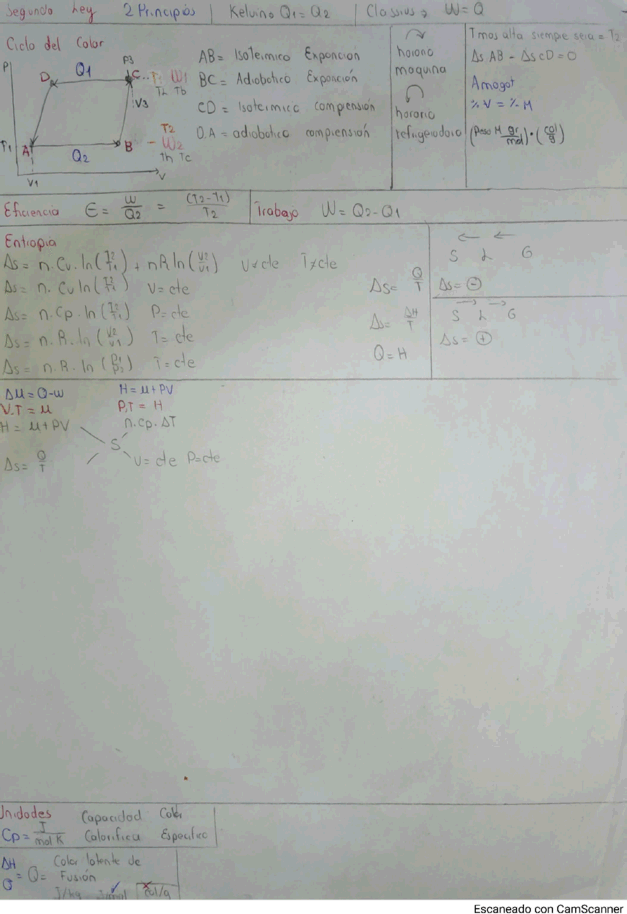 Segunda Ley 2 Principios | Kelvin → Q1 = Q2 | Classius → W = Q
Ciclo del Calor
P
P3
D Q1 C
V3
T1 A Q2 B
V1 V
T2
W2
Th Tc
AB = Isotermico Exponcion
BC = Adiobotico Exponción
CD = Isotermico compensión
D.A = adiobotico compiensión
horono
maquina
horario
refrigerodoro
T mos alta siempe seria = T2
Δs AB - Δs CD = 0
Amagat
% V = % M
(Peso M gr/mol) • (cal/g)
Eficiencia E = W/Q2 = (T2-T1)/T2
Trabajo W = Q2 - Q1
Entropia
Δs = n. Cv. ln (T2/T1) + nR ln (V2/V1) V≠cte T≠cte
Δs = n. Cv ln (T2/T1) V = cte
Δs = n. Cp . ln (T2/T1) P = cte
Δs = n. R. ln (V2/V1) T = cte
Δs = n. R. ln (P1/P2) T = cte
Δs = Q/T
Δs = ΔH/T
Q = H
← ←
S L G
Δs = ⊖
→ →
S L G
Δs = ⊕
ΔU = Q-w H = U + PV
V.T = U P.T = H
H = U + PV n. Cp. ΔT
S
Δs = Q/T V = cte P = cte
Unidades Capacidad Calor
Cp = J/mol K Calorifica Especifico
ΔH Calor latente de
Q = Q = Fusión
J/kg J/mol cal/g
Escaneado con CamScanner